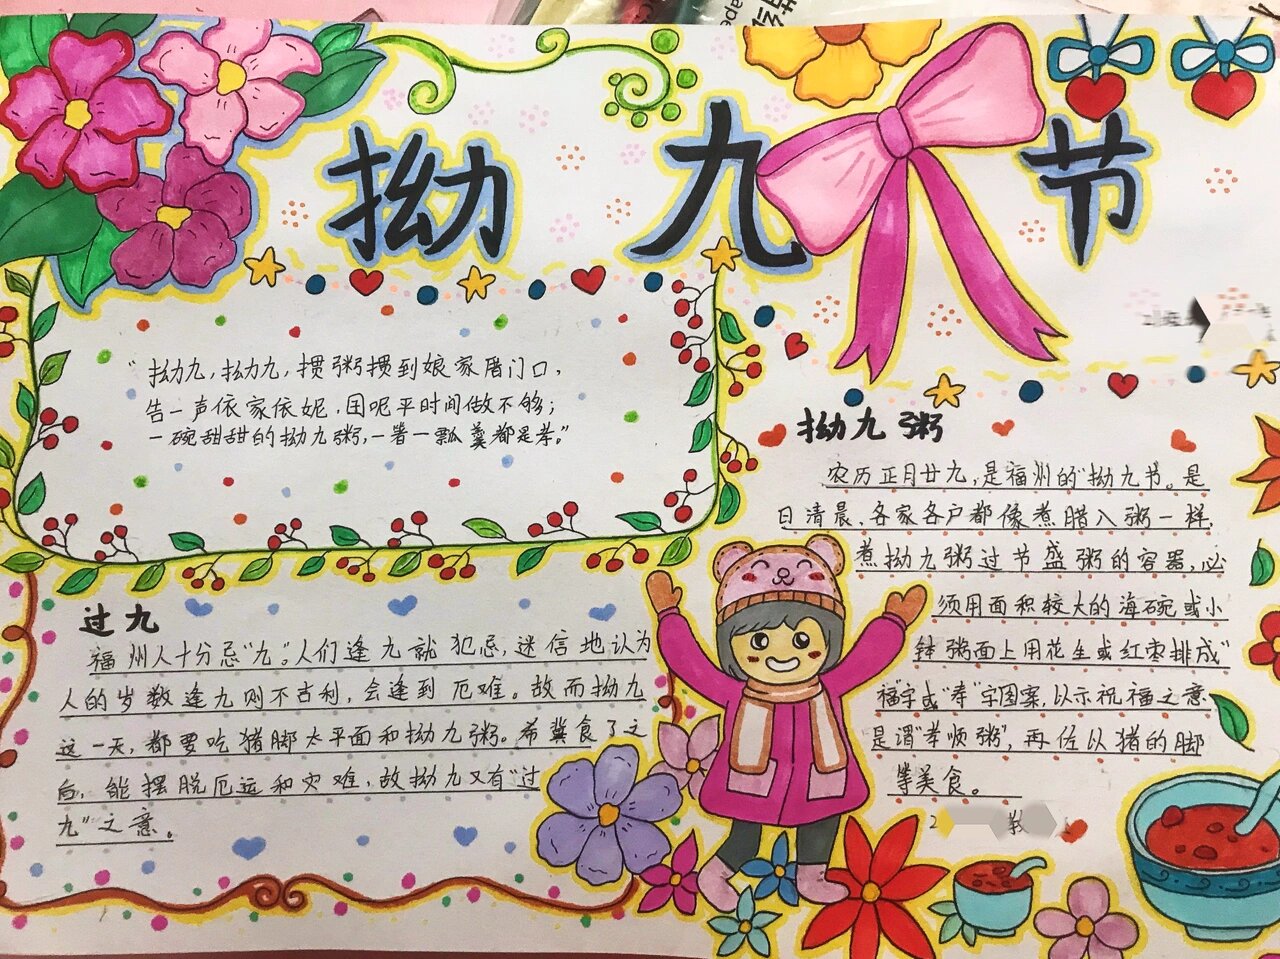 拗九节
"拗九,拗九,掼粥掼到娘家厝门口,
告一声依家依妮,囝呢平时间做不够;
一碗甜甜的拗九粥,一箸一瓢羹都是孝。"
过九
福州人十分忌"九"。人们逢九就犯忌,迷信地认为
人的岁数逢九则不吉利,会逢到厄难。故而拗九
这一天,都要吃猪脚太平面和拗九粥。希冀食了之
后,能摆脱厄远和灾难,故拗九又有"过
九"之意。
拗九粥
农历正月廿九,是福州的"拗九节。是
日清晨,各家各户都像煮腊八粥一样,
煮拗九粥过节盛粥的容器,必
须用面积较大的海碗或小
钵粥面上用花生或红枣排成"
福"字或"孝"字图案,以示祝福之意
是谓"孝顺粥",再佐以猪的脚
等美食。